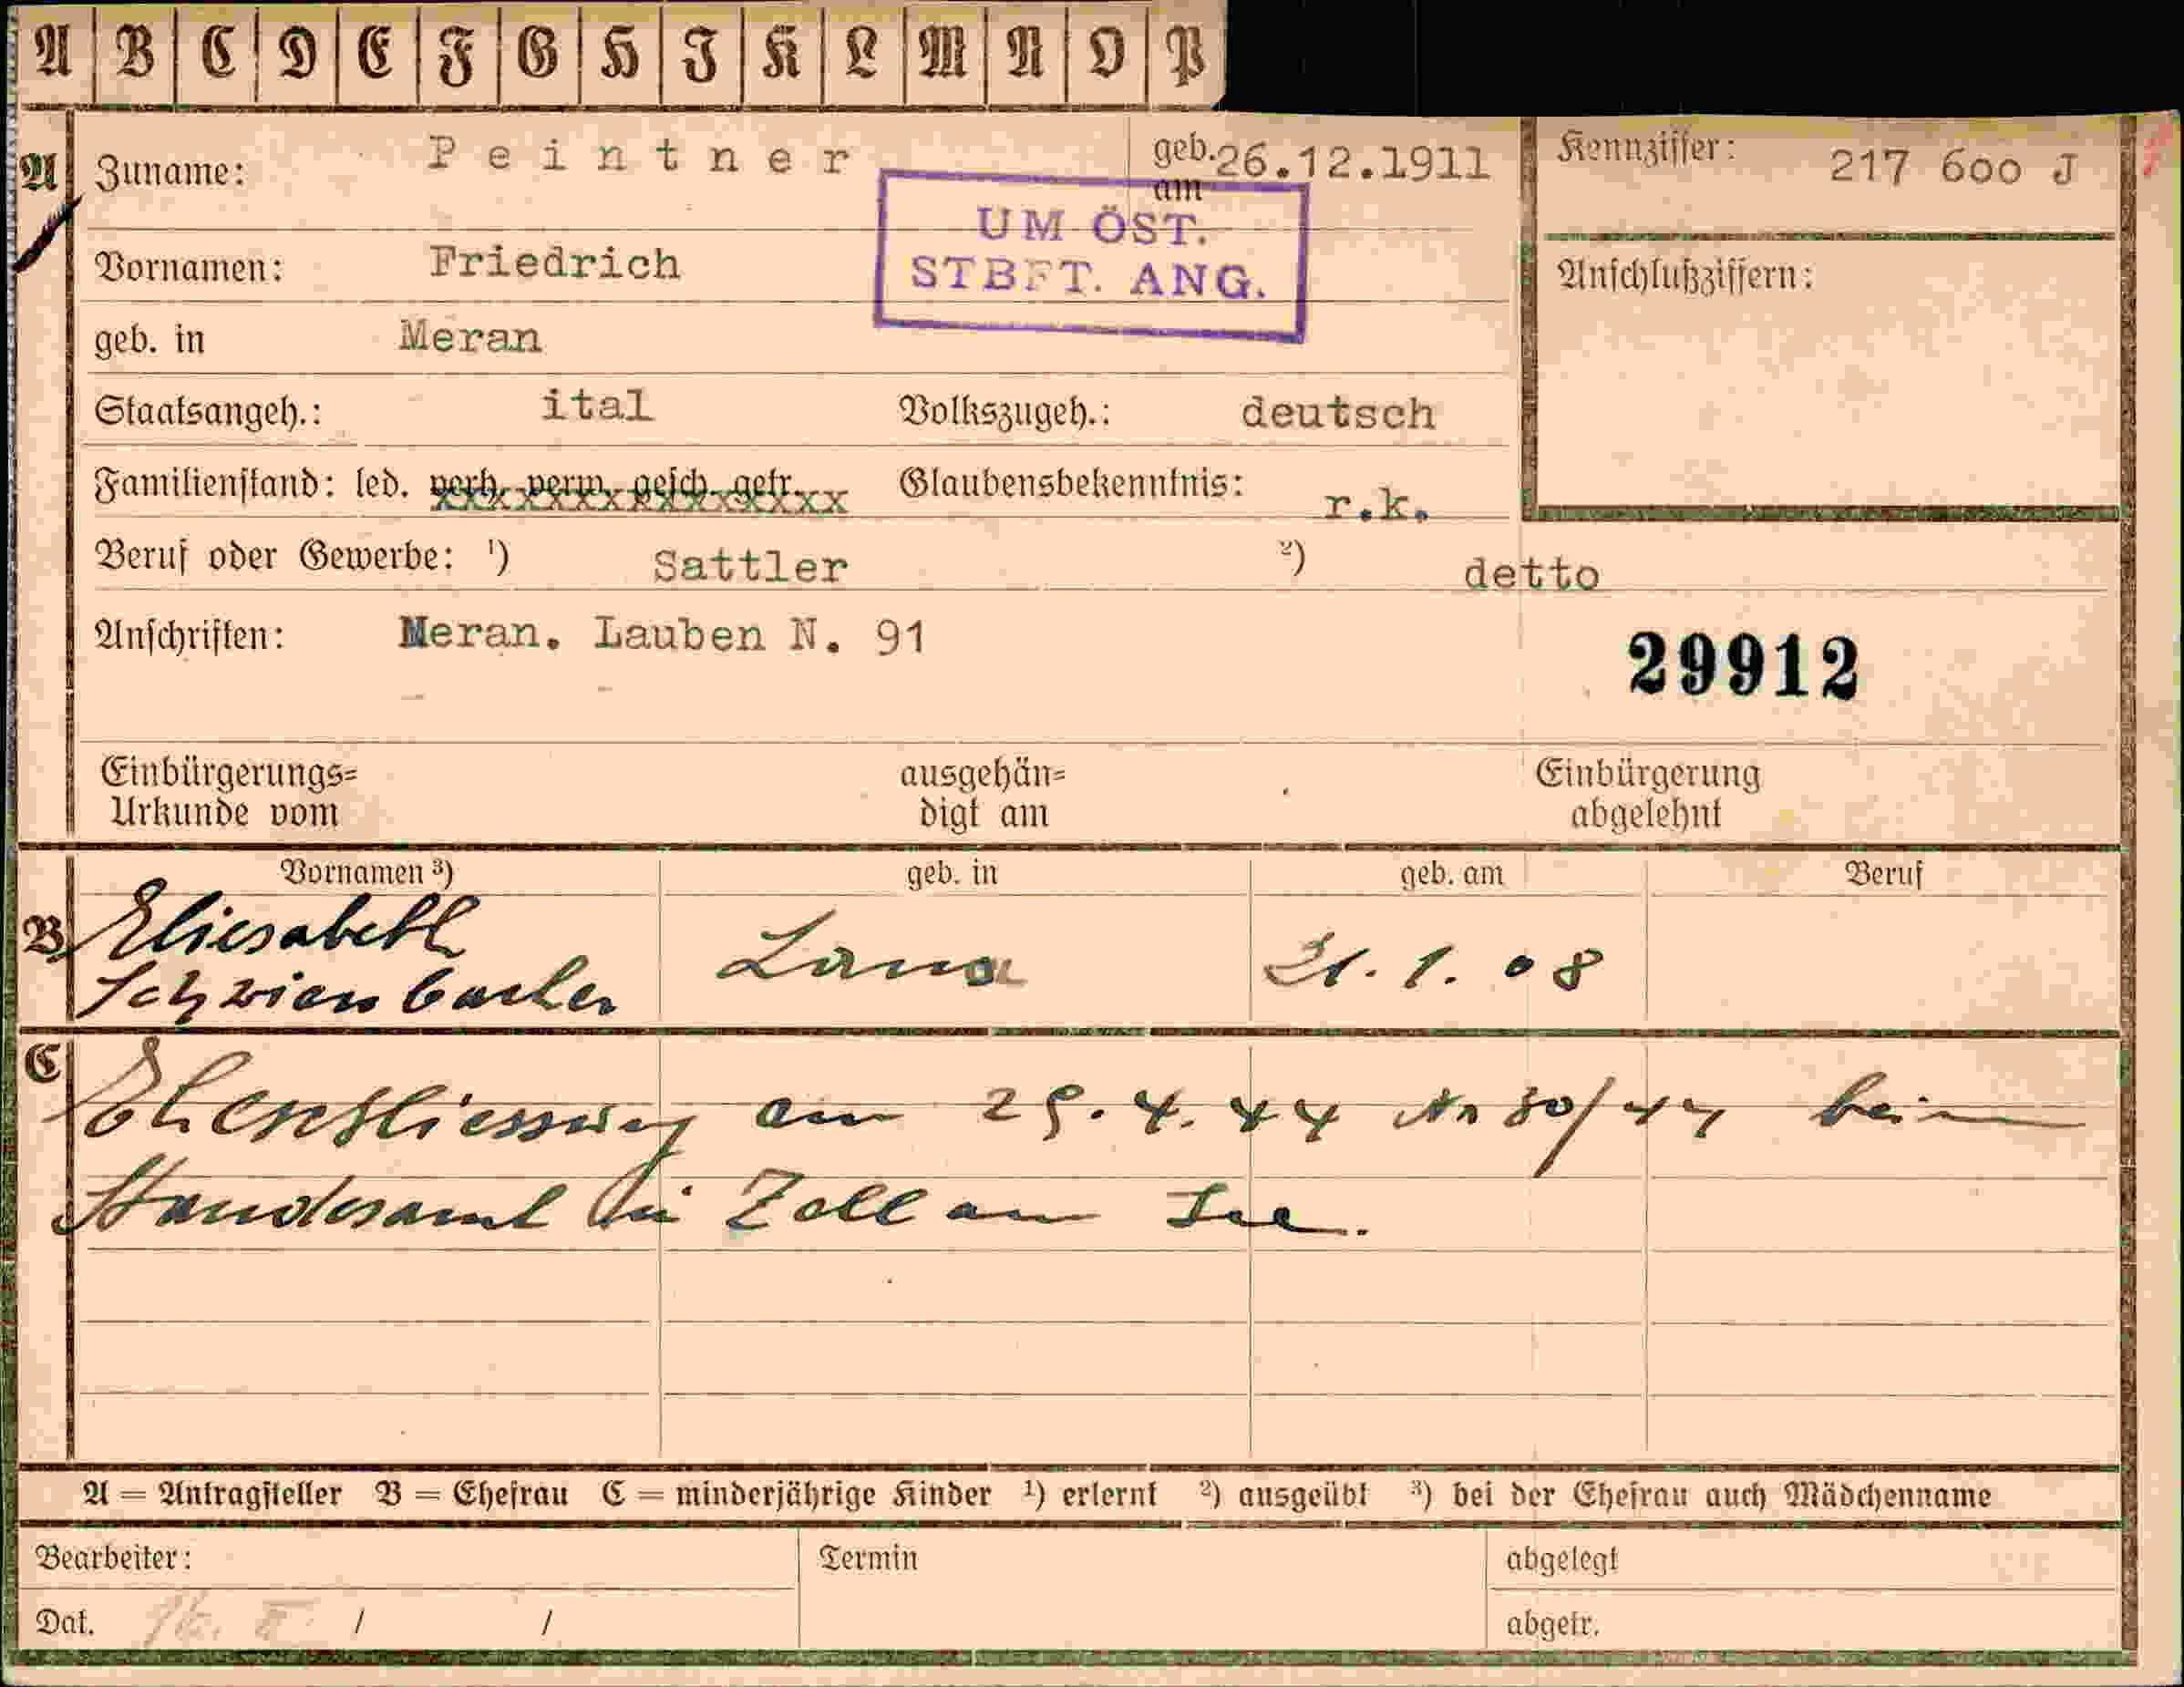 A B C D E F G H I K L M N O P
A Zuname: Peintner geb. am 26.12.1911 Kennziffer: 217 600 J
UM ÖST.
STBFT. ANG.
Vornamen: Friedrich Anschlußziffern:
geb. in Meran
Staatsangeh.: ital Volkszugeh.: deutsch
Familienstand: led. verh. verw. gesch. getr. Glaubensbekenntnis: r.k.
Beruf oder Gewerbe: ¹) Sattler ²) detto
Anschriften: Meran. Lauben N. 91
29912
Einbürgerungs= ausgehän= Einbürgerung
Urkunde vom digt am abgelehnt
Vornamen ³) geb. in geb. am Beruf
B Eliesabeth Lana 31.1.08
Schwienbacher
C
Eheschliessung am 29.4.44 Nr 30/44 beim
Standesamt in Zell am See.
A = Antragsteller B = Ehefrau C = minderjährige Kinder ¹) erlernt ²) ausgeübt ³) bei der Ehefrau auch Mädchenname
Bearbeiter: Termin abgelegt
Dat. / / abgetr.